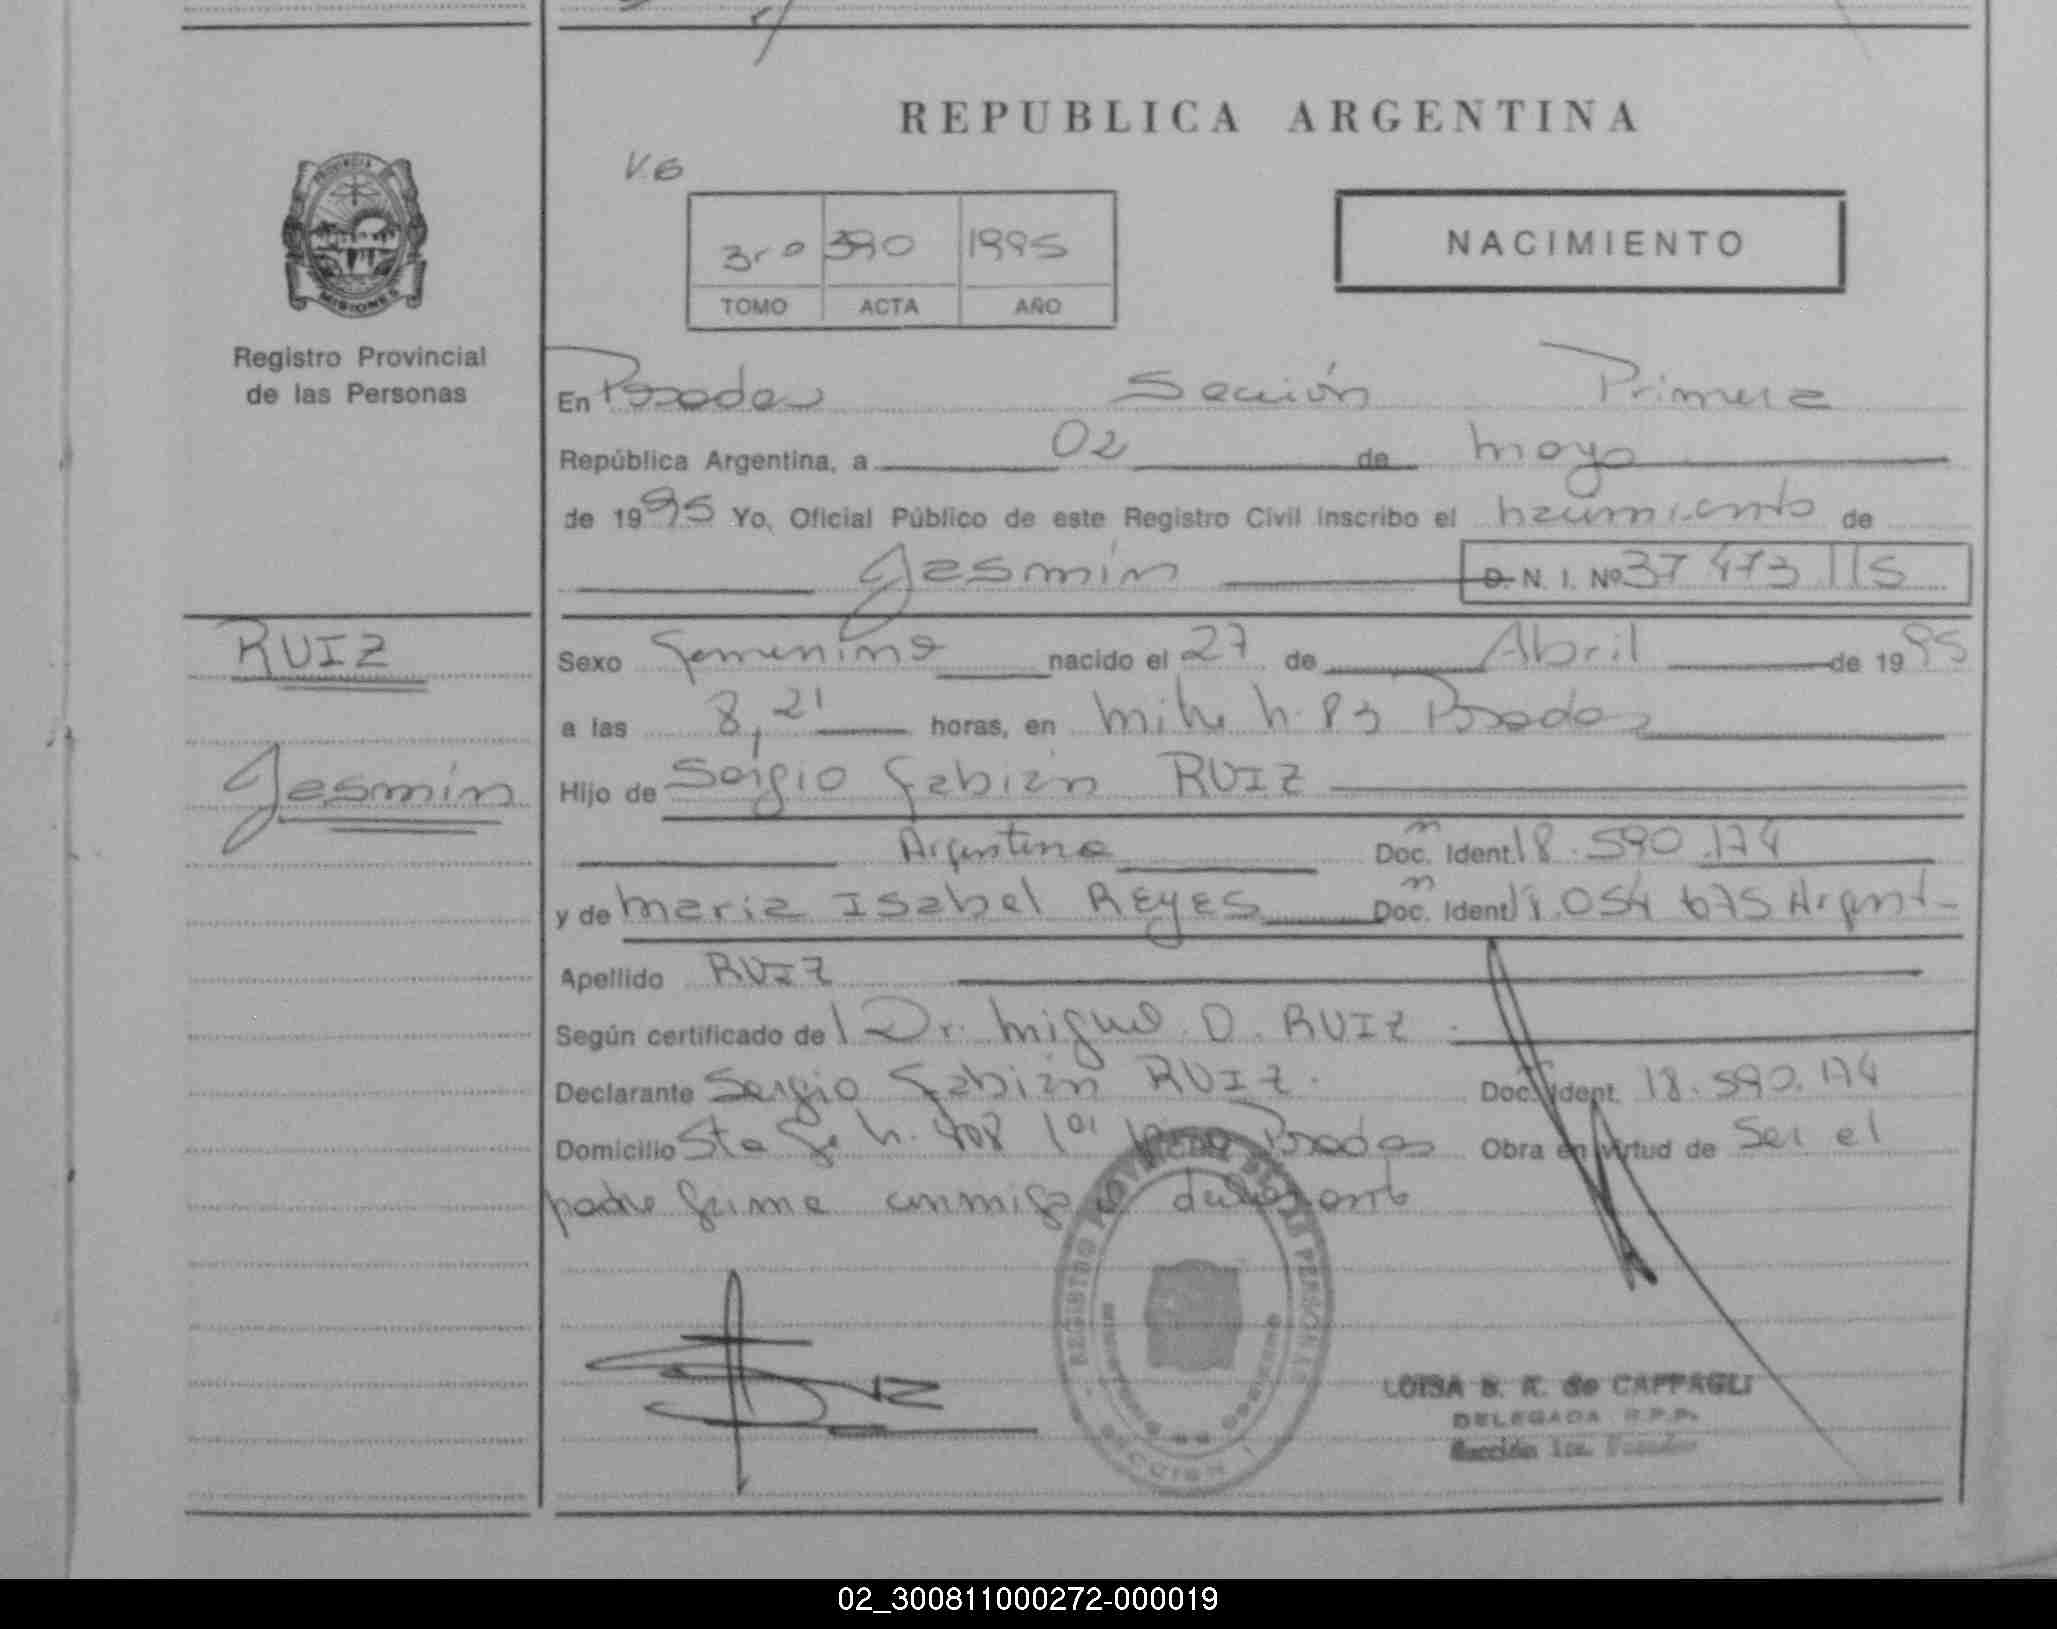 REPUBLICA ARGENTINA
PROVINCIA DE
MISIONES
Registro Provincial
de las Personas
V.G
3ro 390 1995
TOMO ACTA AÑO
NACIMIENTO
En Posadas Sección Primera
República Argentina, a 02 de mayo
de 1995 Yo, Oficial Público de este Registro Civil inscribo el nacimiento de
Jasmín D. N. I. Nº 37 473 115
RUIZ
Jasmín
Sexo femenino nacido el 27 de Abril de 1995
a las 8,21 horas, en Mitre n. 83 Posadas
Hijo de Sergio Fabián RUIZ
Argentino Doc. Ident. 18.590.174
y de María Isabel REYES Doc. Ident. 054 675 Argent-
Apellido RUIZ
Según certificado de l Dr. Miguel O. RUIZ.
Declarante Sergio Fabián RUIZ. Doc. Ident. 18.590.174
Domicilio Sta Fe n. 408 1er piso Posadas Obra en virtud de Ser el
padre firma conmigo el declarante
REGISTRO PROVINCIAL DE LAS PERSONAS
MINISTERIO DE GOBIERNO
SECCION 1
LOISA B. R. de CAPPAGLI
DELEGADA R.P.P.
Sección 1ra. Posadas
02_300811000272-000019